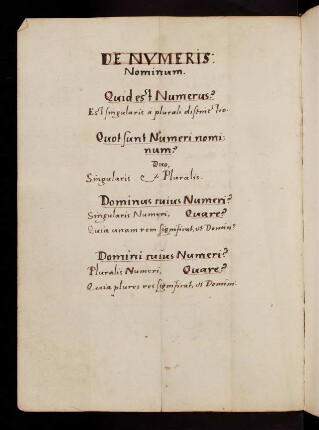 DE NVMERIS:
Nominum.
Quid est Numerus?
Est singularis à plurali distinctio.
Quot sunt Numeri nomi:
num?
Duo,
Singularis & Pluralis.
Dominus cuius Numeri?
Singularis Numeri, Quare?
Quia unam rem significat, ut Domin9
Domini cuius Numeri?
Pluralis Numeri, Quare?
Quia plures res significat, ut Domini.